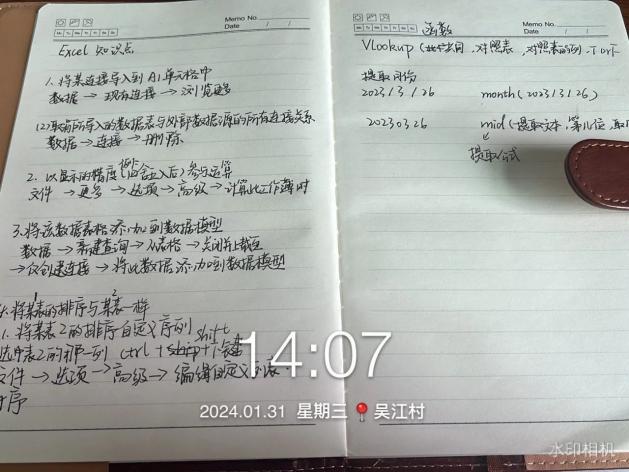 Memo No.
Date / /
Mo Tu We Th Fr Sa Su
Excel 知识点
1. 将某连接导入到 A1单元格中
数据 → 现有连接 → 浏览更多
(2)取消所导入的数据表与外部数据源的所有连接关系
数据 → 连接 → 删除
2. 以显示的精度(四舍五入后)参与运算
文件 → 更多 → 选项 → 高级 → 计算此工作簿时
3. 将该数据表格添加到数据模型
数据 → 新建查询 → 从表格 → 关闭并上载至
→ 仅创建连接 → 将此数据添加到数据模型
将某表的排序与某表一样
1. 将某表2的排序自定义序列
选中表2的那一列 ctrl + shift + ↓键
文件 → 选项 → 高级 → 编辑自定义列表
Memo No.
Date / /
Mo Tu We Th Fr Sa Su
函数
Vlookup ( 对照表, 对照表的列,
提取月份
2023/3/26 month (2023/3/26)
20230326 mid (提取文本, 第几位, 取
提取公式
14:07
2024.01.31 星期三 吴江村
水印相机